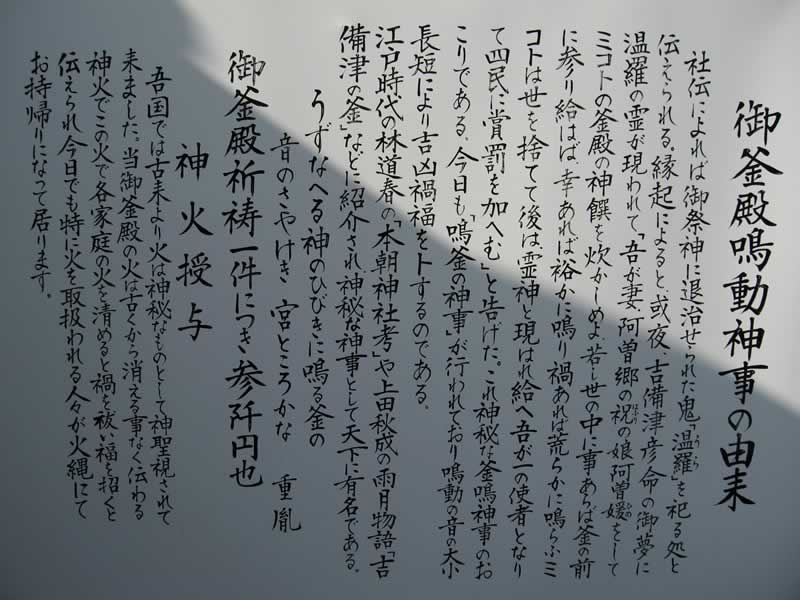 御釜殿鳴動神事の由来
社伝によれば御祭神に退治せられた鬼「温羅」を祀る処と
うら
伝えられる。縁起によると、或夜、吉備津彦命の御夢に
温羅の霊が現われて「吾が妻、阿曽郷の祝の娘阿曽媛をして
ミコトの釜殿の神饌を炊かしめよ、若し世の中に事あらば釜の前
に参り給はば、幸あれば裕かに鳴り禍あれば荒らかに鳴らふミ
コトは世を捨てて後は霊神と現はれ給へ吾が一の使者となり
て四民に賞罰を加へむ」と告げた。これ神秘な釜鳴神事のお
こりである、今日も「鳴釜の神事」が行われており鳴動の音の大小
長短により吉凶禍福を卜するのである。
江戸時代の林道春の「本朝神社考」や上田秋成の雨月物語「吉
備津の釜」などに紹介され神秘な神事として天下に有名である。
うずなへる神のひびきに鳴る釜の
音のさやけき 宮ところかな 重胤
御釜殿祈祷一件につき参阡円也
神火授与
吾国では古来より火は神秘なものとして神聖視されて
来ました。当御釜殿の火は古くから消える事なく伝わる
神火でこの火で各家庭の火を清めると禍を祓い福を招くと
伝えられ今日でも特に火を取扱われる人々が火縄にて
お持帰りになって居ります。